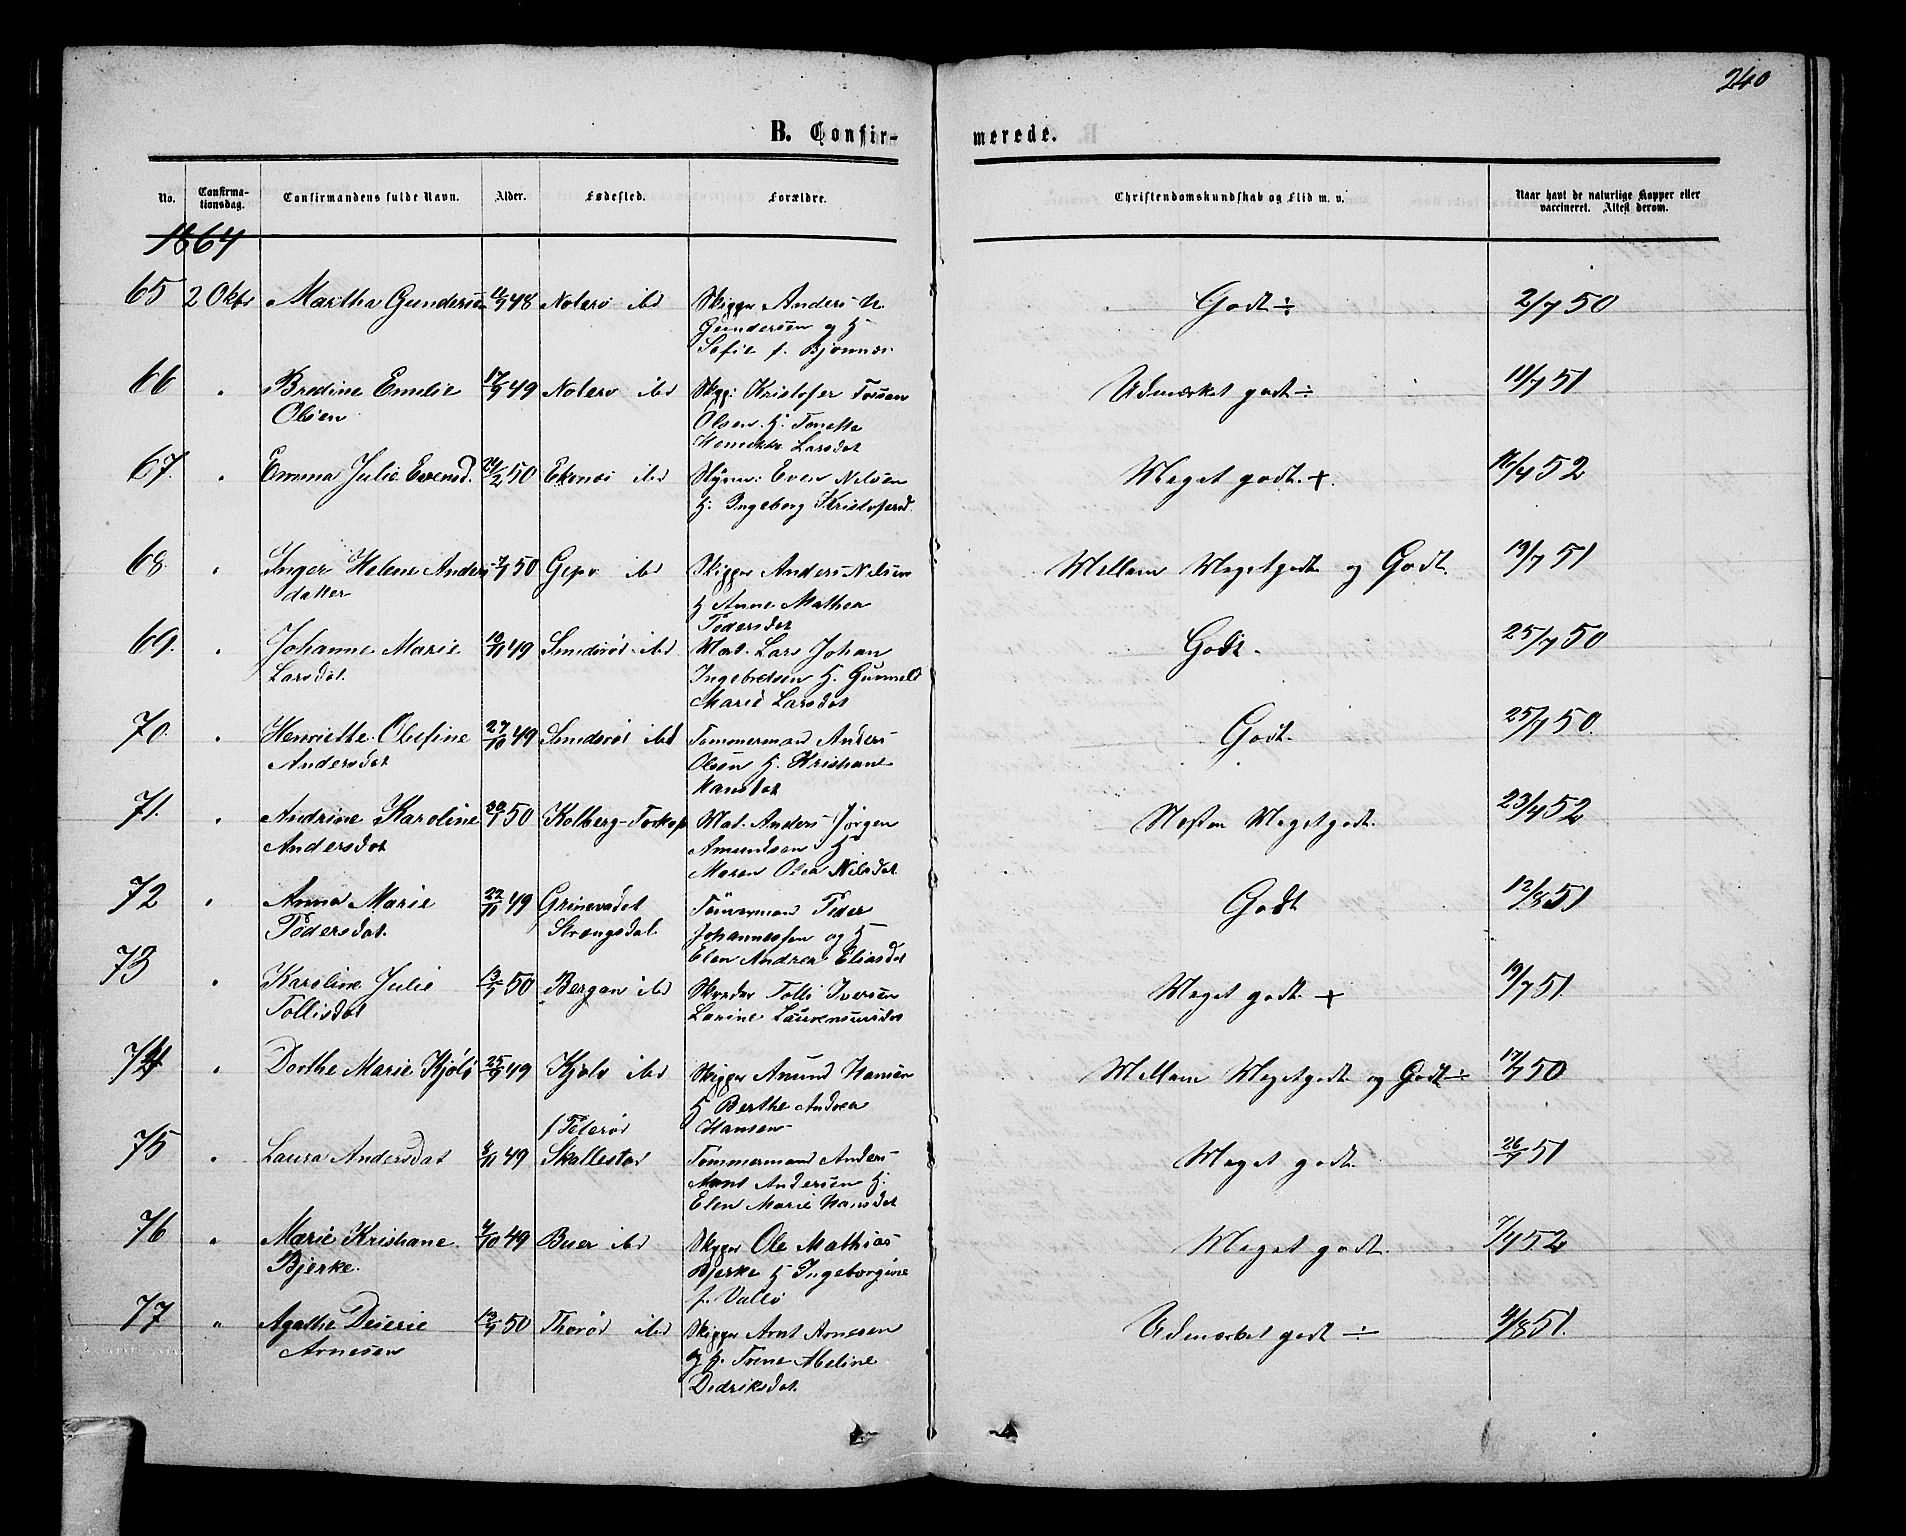 240
B. Confir-
merede.
No.
Confirma-
tionsdag.
Confirmandens fulde Navn.
Alder.
Fødested.
Forældre.
Christendomskundskab og Flid m. v.
Naar havt de naturlige Kopper eller
vaccineret. Attest derom.
1864
65 2 Okbr Martha Gundersen 48 Noterø ibd Skipper Anders N. Godt ÷ 2/7 50
Gundersen og H
Sofie f. Bjønnes
66 " Bredine Emelie 17/9 49 Noterø ibd Skpp: Kristofer Udmærket godt ÷ 11/7 51
Olsen Olsen H. Tonette
Larsdat
67. " Emma Julie Evensd. 24/2 50 Ekenes ibd Even Nilsen Meget godt. +. 16/4 52
H. Ingeborg Kristofersd.
68. " Inger Helene Anders 50 Gipø ibd Skipper Anders Nilsen Mellem Megetgodt og Godt. 19/7 51
datter H Anne Mathea
Pedersdat
69. " Johanne Marie 10/11 49 Smidsrød ibd Mat. Lars Johan Godt. 25/7 50
Larsdat. Ingebretsen H. Gunneld
Marie Larsdat
70. " Henriette Olefine 27/10 49 Smidsrød ibd Tømmermand Anders Godt. 25/7 50.
Andersdat Olsen H. Kristiane
Hansdat
71. " Andrine Karoline 30/1 50 Kolberg - Mat. Anders Jørgen Næsten Megetgodt. 23/4 52
Andersdat Amundsen H
Maren Olea Nilsdat
72 " Anna Marie 22/11 49 Tømmermand Peder Godt 12/8 51
Pedersdat. Strengsdal Johannessen og H
Elen Andrea Eliasdat
73 " Karoline Julie 13/1 50 Bergan ibd Skræder Tolli Iversen Meget godt. + 19/7 51.
Tollisdat Larine Laurensensdat
74 " Dorthe Marie Kjølø 25/9 49 Kjølø ibd Skipper Amund Hansen Mellem Megetgodt og Godt ÷ 17/7 50
H Berthe Andrea
Hansen
75 " Laura Andersdat 49 Skallestad Tømmermand Anders Meget godt. 26/7 51
Arnt Andersen H.
Elen Marie Hansdat
76 " Marie Kristiane 4/10 49 Buer ibd Skipper Ole Mathias Meget godt. 7/4 52
Bjerke. Bjerke H Ingeborgine
f. Vallø
77 " Agathe 13/1 50 Thorød ibd Skipper Arnt Arnesen Udmærket godt ÷ 4/8 51.
Arnesen og H. Trine Abeline
Didriksdat.